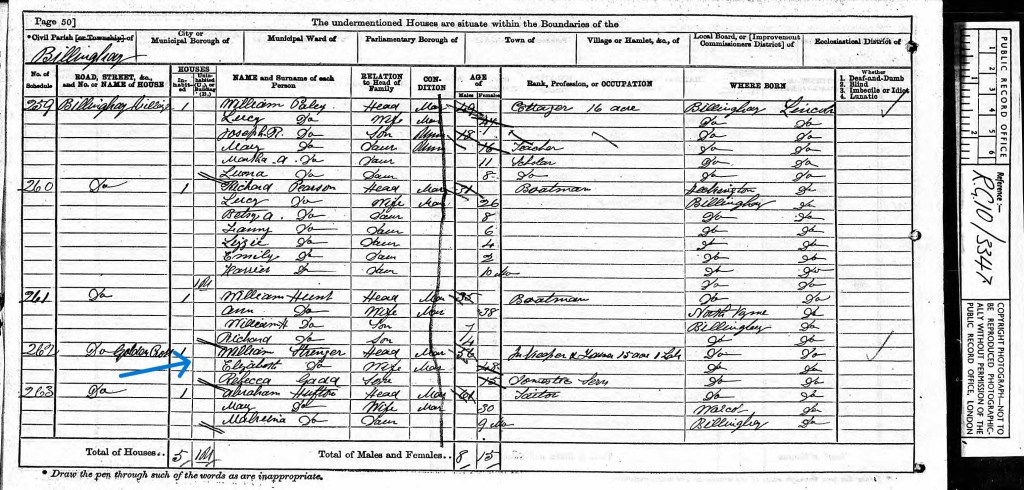 Page 50]
The undermentioned Houses are situate within the Boundaries of the
Civil Parish [or Township] of
City or Municipal Borough of
Municipal Ward of
Parliamentary Borough of
Town of
Village or Hamlet, &c., of
Local Board, or [Improvement Commissioners District] of
Ecclesiastical District of
Billinghay
No. of Schedule
ROAD, STREET, &c., and No. or NAME of HOUSE
HOUSES
Inhabited
Uninhabited (U.), or Building (B.)
NAME and Surname of each Person
RELATION to Head of Family
CONDITION
AGE of
Males
Females
Rank, Profession, or OCCUPATION
WHERE BORN
Whether
1. Deaf-and-Dumb
2. Blind
3. Imbecile or Idiot
4. Lunatic
259 Billinghay 1 William Head Mar 49 Cottager 16 acre Billinghay Lincoln
Lucy Do Wife Mar 44 Do Do
Joseph R. Do Son Unm 18 Do Do
Mary Do Daur Unm 16 Teacher Do Do
Martha A. Do Daur 11 Scholar Do Do
Do Daur 8 Do Do Do
260 Do 1 Richard Pearson Head Mar 31 Boatman Heckington Do
Lucy Do Wife Mar 26 Billinghay Do
Betsy A. Do Daur 8 Do Do
Fanny Do Daur 6 Do Do
Lizzie Do Daur 4 Do Do
Emily Do Daur 2 Do Do
Do Daur 10 Mo Do Do
1U Do Do
261 Do 1 William Hunt Head Mar 35 Boatman Do Do
Ann Do Wife Mar 38 North Kyme Do
William H Do Son 7 Billinghay Do
Richard Do Son 4 Do Do
262 Do Golden 1 William Head Mar 56 Do Do
Elizabeth Do Wife Mar 48 Do Do
Rebecca 15 Domestic Serv Do Do
263 Do 1 Abraham Hufton Head Mar 61 Do Do
Mary Do Wife Mar 30 Do
Do Daur 9 Mo Billinghay Do
Total of Houses.. 5 1U
Total of Males and Females.. 8 15
* Draw the pen through such of the words as are inappropriate.
PUBLIC RECORD OFFICE
1 2 3 4 5 6
Reference :-
R.G. 10/3347
COPYRIGHT PHOTOGRAPH—NOT TO BE REPRODUCED PHOTOGRAPHICALLY WITHOUT PERMISSION OF THE PUBLIC RECORD OFFICE, LONDON